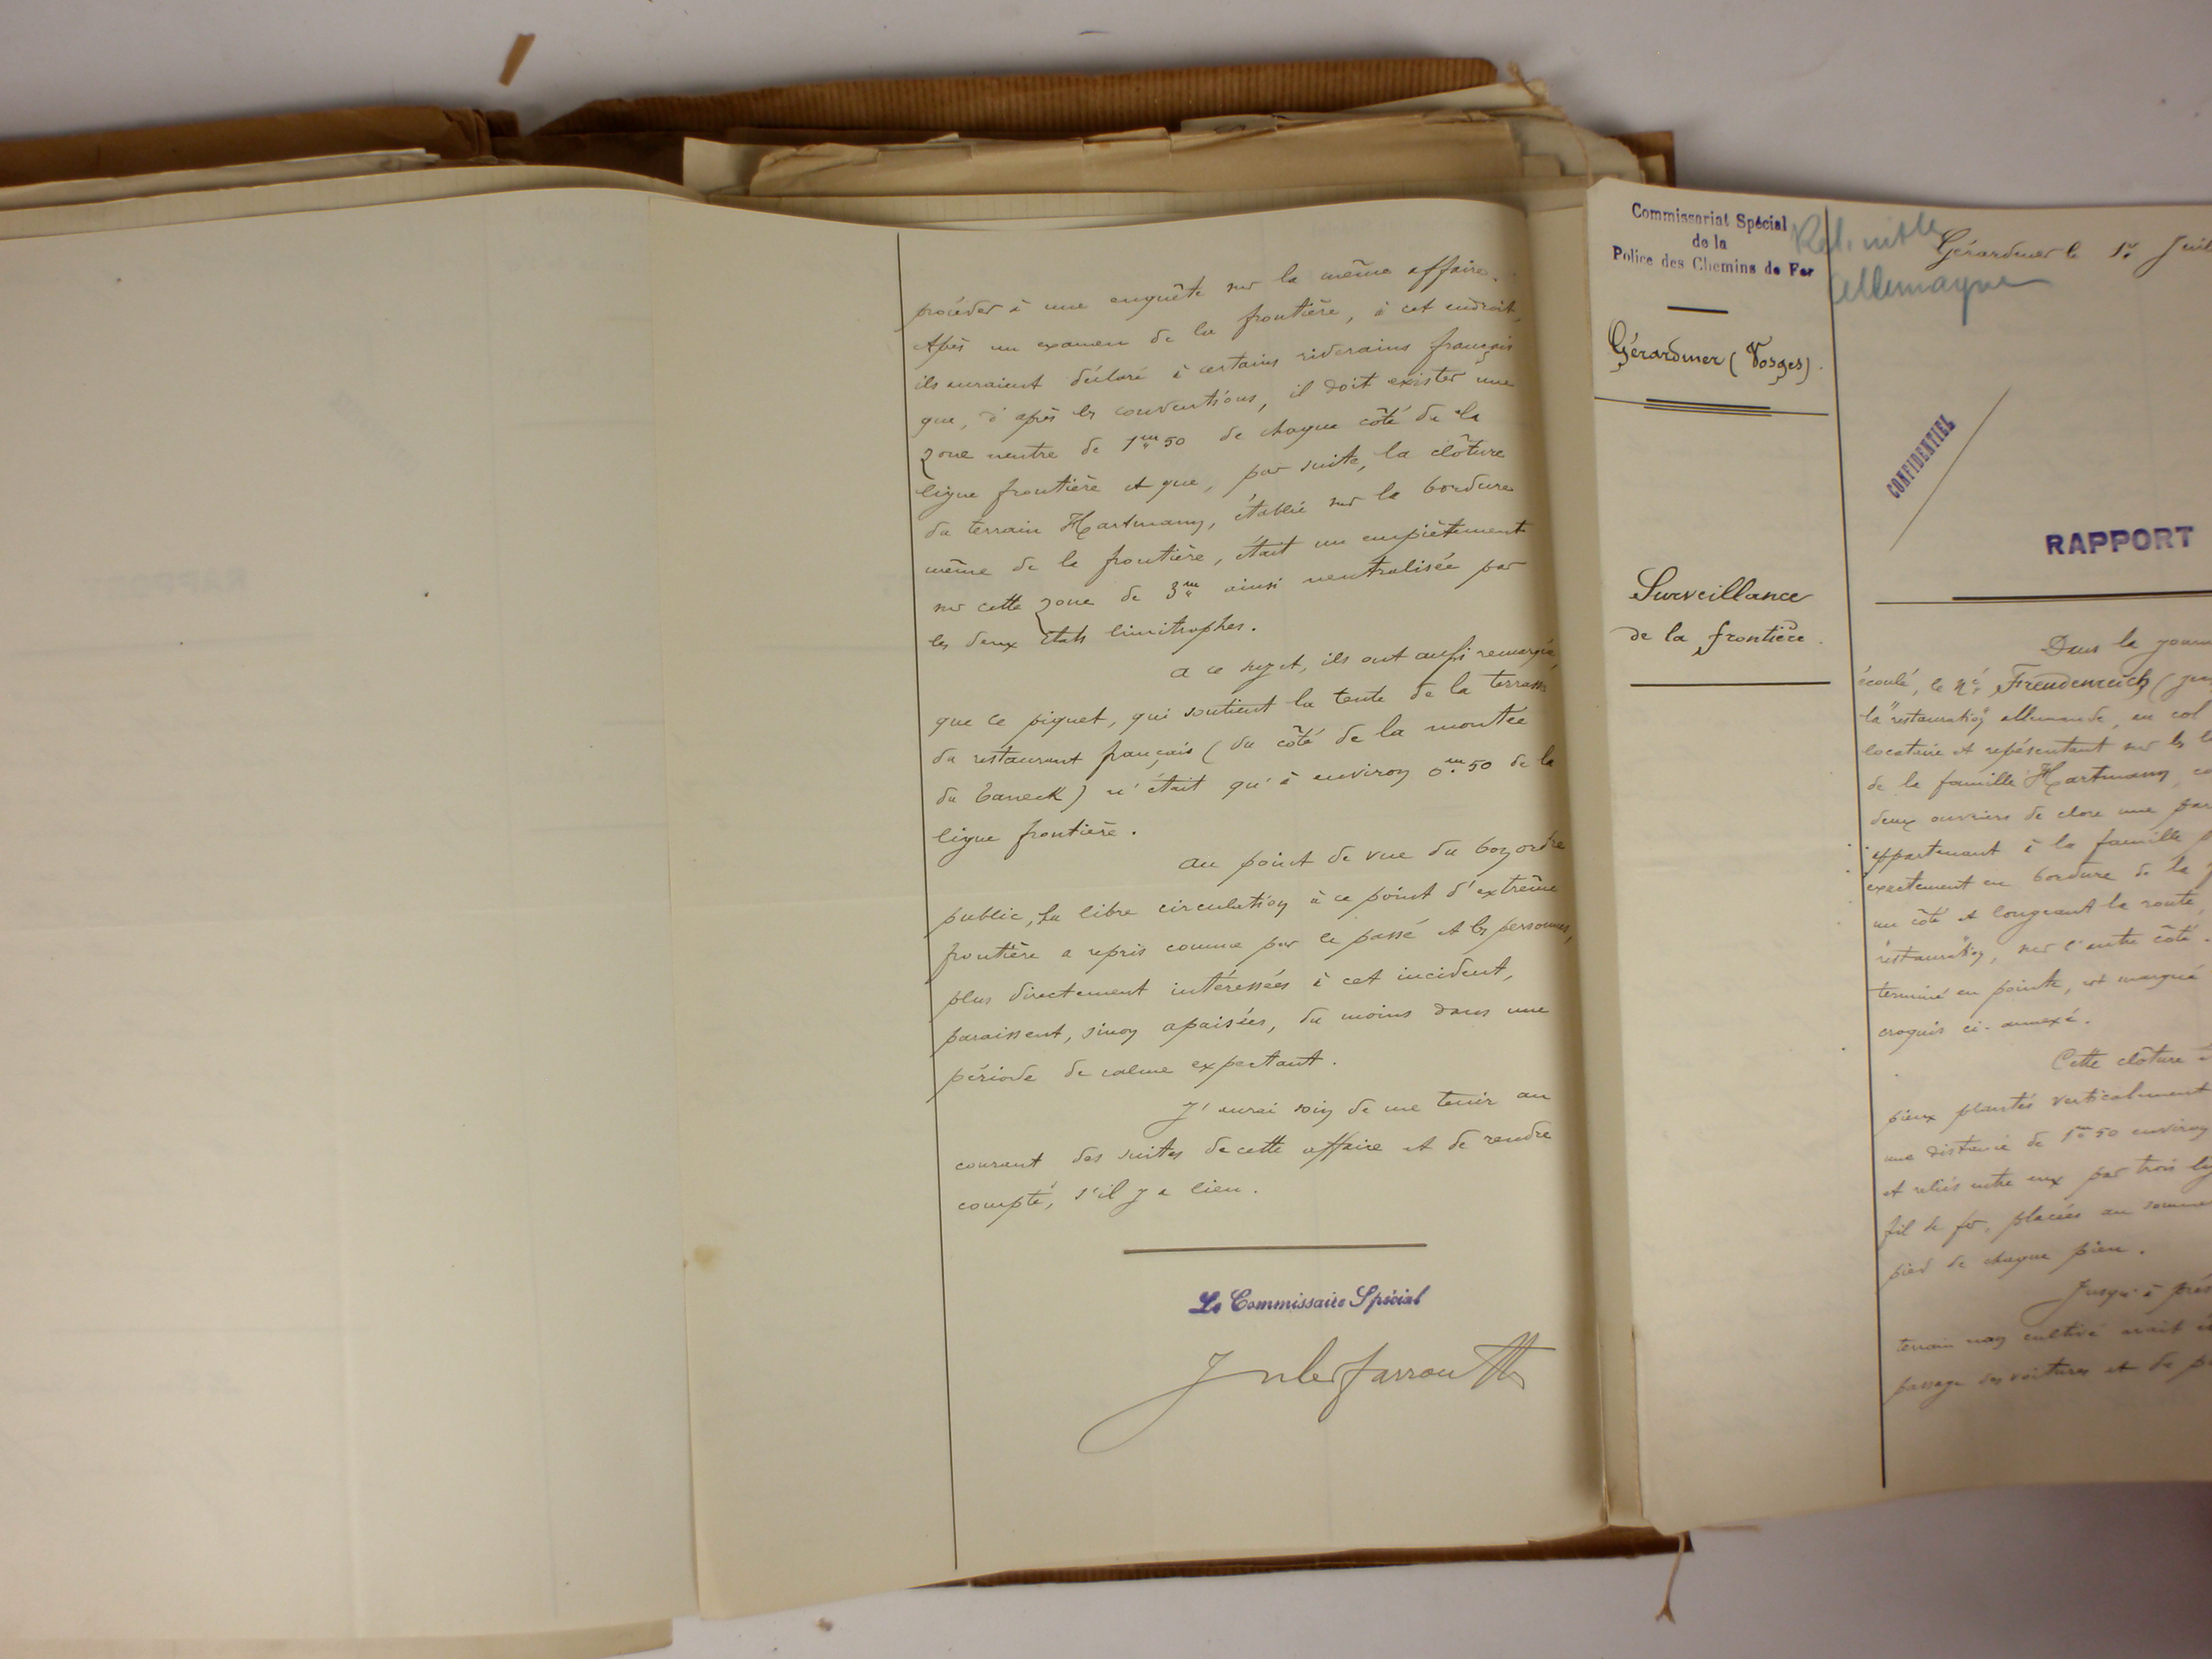 procéder à une enquête sur la même affaire.
Après un examen de la frontière, à cet endroit,
ils auraient déclaré à certains riverains français
que, d'après les conventions, il doit exister une
zone neutre de 1m50 de chaque côté de la
ligne frontière et que, par suite, la clôture
du terrain Hartmann, établie sur la bordure
même de la frontière, était un empiètement
sur cette zone de 3m ainsi neutralisée par
les deux Etats limitrophes.
A ce sujet, ils ont aussi remarqué
que le piquet, qui soutient la tente de la terrasse
du restaurant français (du côté de la montée
du Taneck) n'était qu'à environ 0m50 de la
ligne frontière.
Au point de vue du bon ordre
public, la libre circulation à ce point d'extrême
frontière a repris comme par le passé et les personnes,
plus directement intéressées à cet incident,
paraissent, sinon apaisées, du moins dans une
période de calme expectant.
J'aurai soin de me tenir au
courant des suites de cette affaire et de rendre
compte, s'il y a lieu.
Le Commissaire Spécial
Commissariat Spécial
de la
Police des Chemins de Fer
Gérardmer (Vosges).
Surveillance
de la frontière.
Allemagne
Gérardmer le 1er
CONFIDENTIEL
RAPPORT
Dans la
écoulé, le né Freudenreich
la "restauration" allemande, au col
locataire et représentant sur les
de la famille Hartmann,
deux ouvriers de clore une
appartenant à la famille
exactement en bordure de la
un côté et longeant la route,
"restauration", sur l'autre côté.
terminé en pointe, est marqué
croquis ci-annexé.
Cette clôture
pieux plantés verticalement
une distance de 1m50 environ
et reliés entre eux par trois
fil de fer, placées au
pied de chaque pieu.
Jusqu'à
terrain non cultivé avait
passage des voitures et de